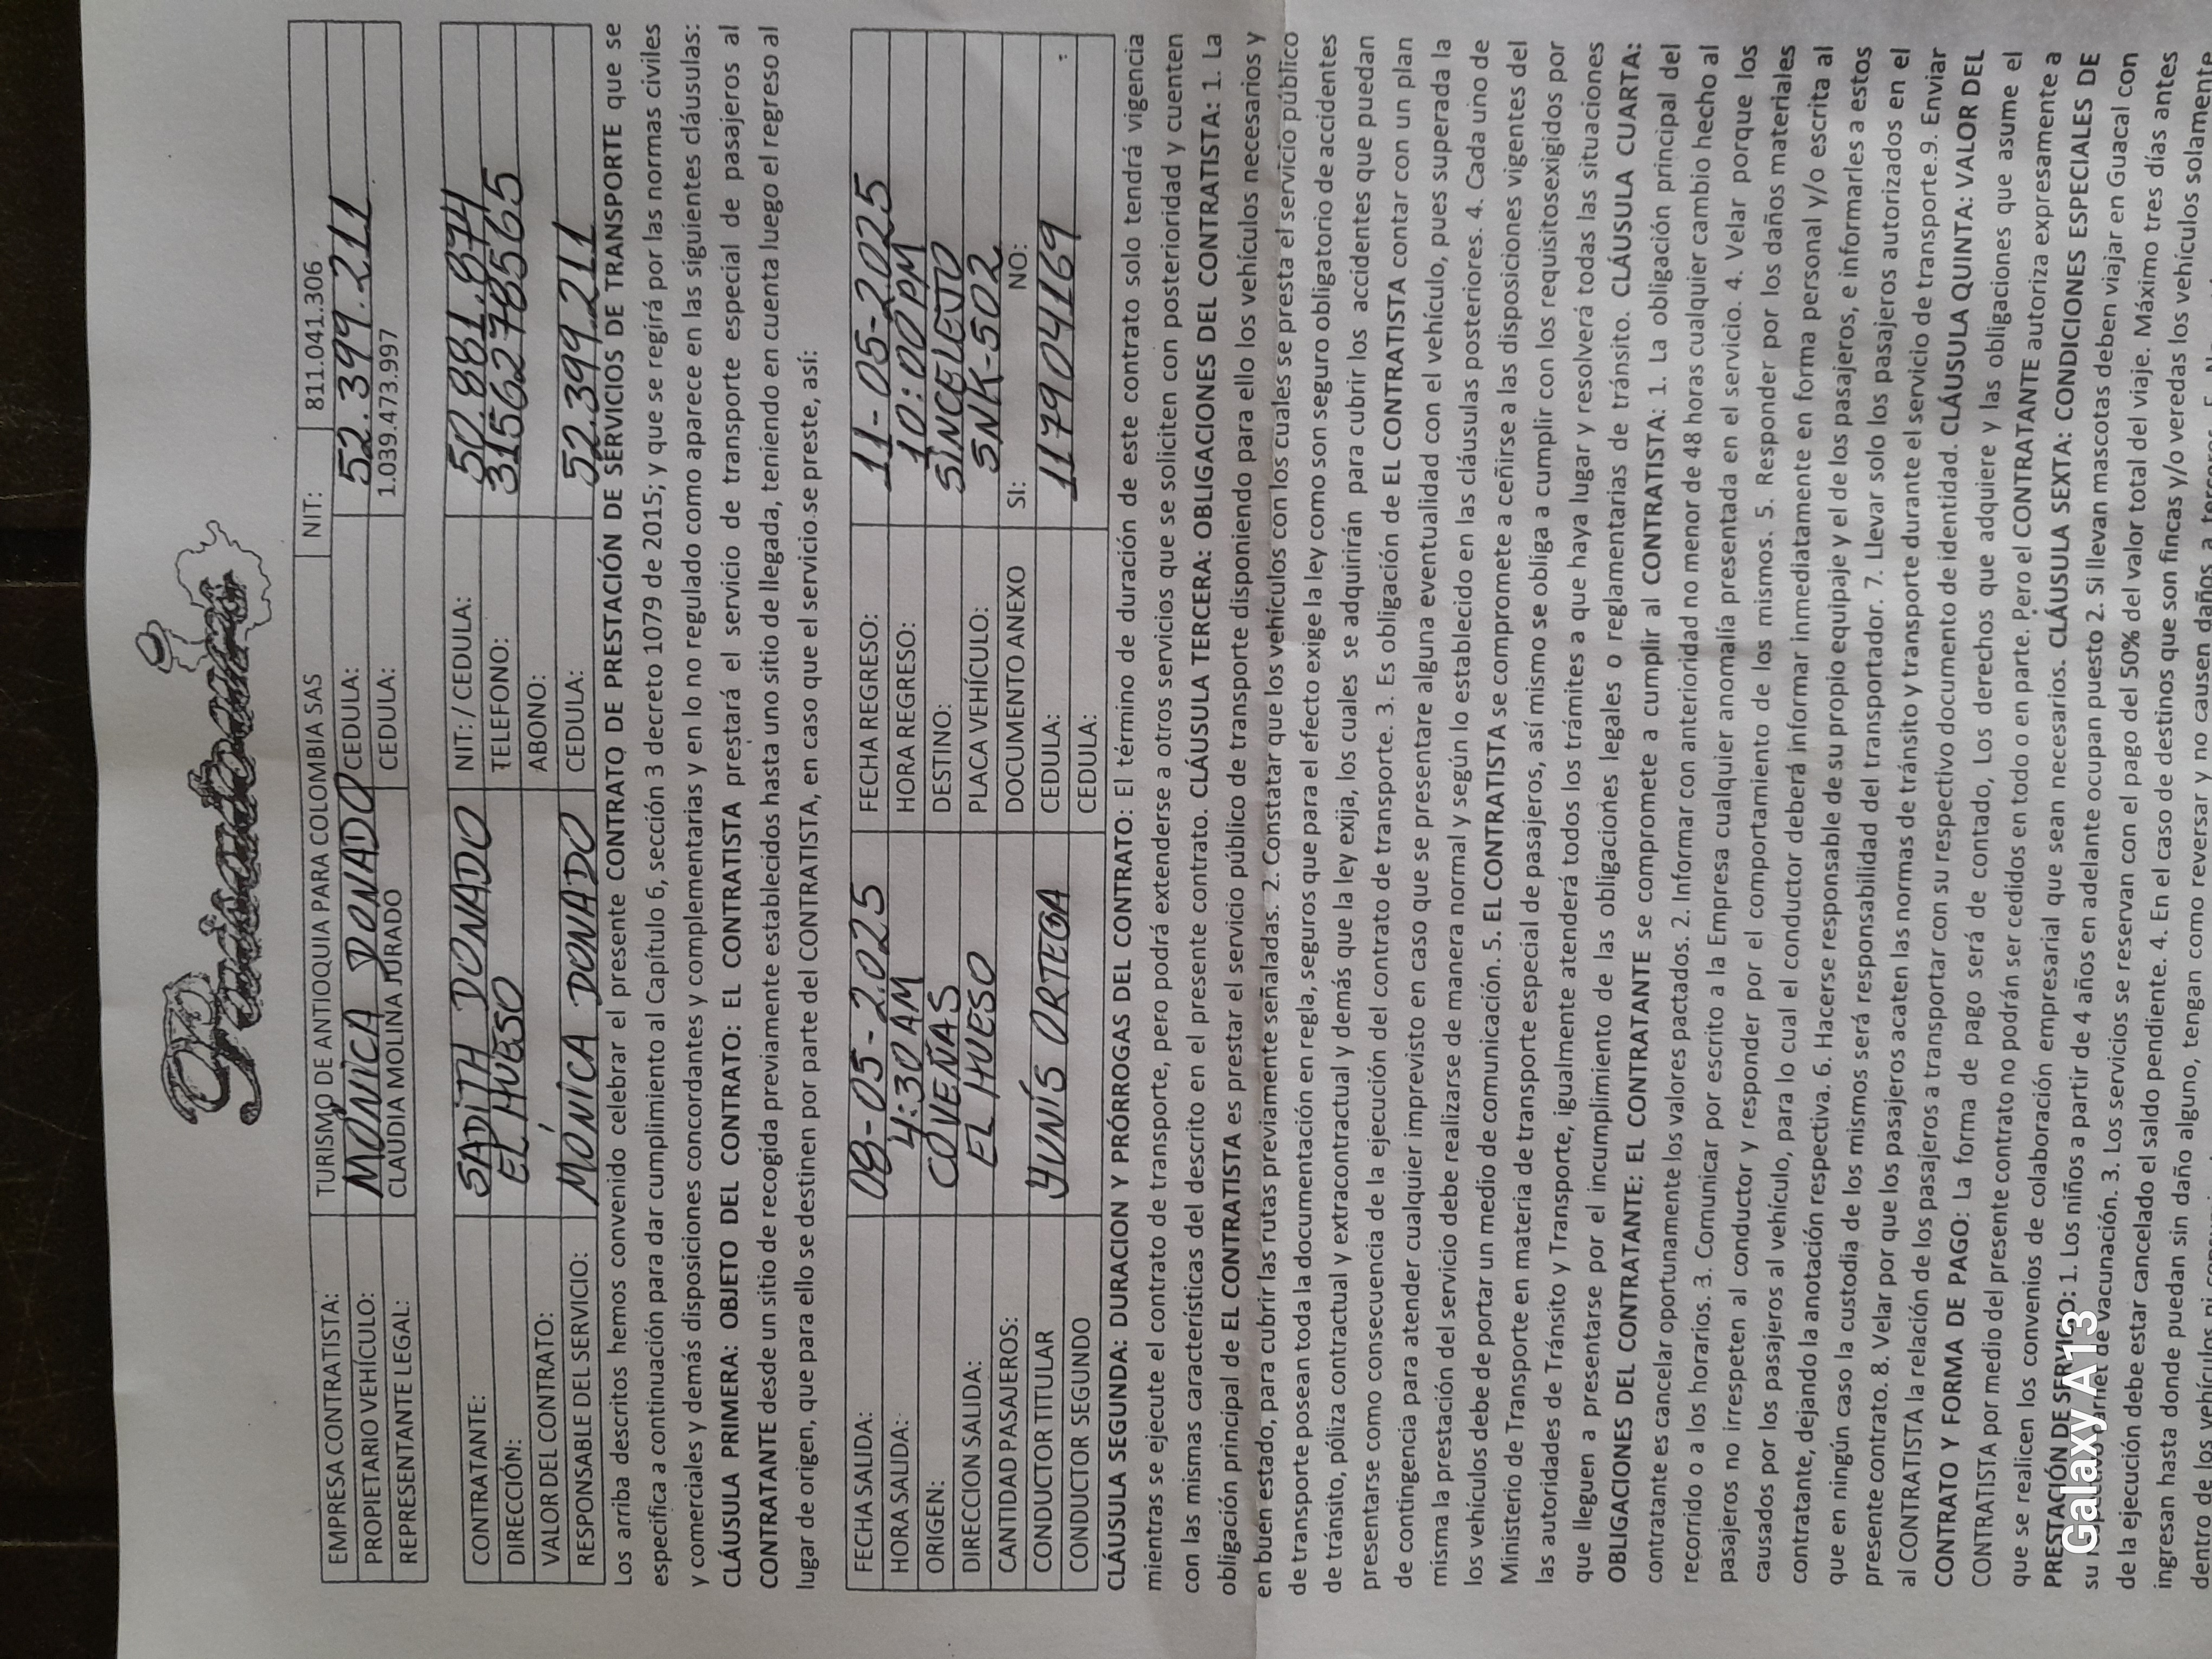 EMPRESA CONTRATISTA: TURISMO DE ANTIOQUIA PARA COLOMBIA SAS NIT: 811.041.306
PROPIETARIO VEHÍCULO: MÓNICA DONADO CEDULA: 52.399.211
REPRESENTANTE LEGAL: CLAUDIA MOLINA JURADO CEDULA: 1.039.473.997
CONTRATANTE: SADITH DONADO NIT: / CEDULA: 50.881.874
DIRECCIÓN: EL HUESO TELEFONO: 3156278565
VALOR DEL CONTRATO: ABONO:
RESPONSABLE DEL SERVICIO: MONICA DONADO CEDULA: 52.399.211
Los arriba descritos hemos convenido celebrar el presente CONTRATO DE PRESTACIÓN DE SERVICIOS DE TRANSPORTE que se
especifica a continuación para dar cumplimiento al Capítulo 6, sección 3 decreto 1079 de 2015; y que se regirá por las normas civiles
y comerciales y demás disposiciones concordantes y complementarias y en lo no regulado como aparece en las siguientes cláusulas:
CLÁUSULA PRIMERA: OBJETO DEL CONTRATO: EL CONTRATISTA prestará el servicio de transporte especial de pasajeros al
CONTRATANTE desde un sitio de recogida previamente establecidos hasta uno sitio de llegada, teniendo en cuenta luego el regreso al
lugar de origen, que para ello se destinen por parte del CONTRATISTA, en caso que el servicio se preste, así:
FECHA SALIDA: 08-05-2.025 FECHA REGRESO: 11-05-2025
HORA SALIDA: 4:30 AM HORA REGRESO: 10:00 PM
ORIGEN: COVEÑAS DESTINO: SINCELEJO
DIRECCION SALIDA: EL HUESO PLACA VEHÍCULO: SNK-502
CANTIDAD PASAJEROS: DOCUMENTO ANEXO SI: NO:
CONDUCTOR TITULAR YUNÍS ORTEGA CEDULA: 117904169
CONDUCTOR SEGUNDO CEDULA:
CLÁUSULA SEGUNDA: DURACION Y PRÓRROGAS DEL CONTRATO: El término de duración de este contrato solo tendrá vigencia
mientras se ejecute el contrato de transporte, pero podrá extenderse a otros servicios que se soliciten con posterioridad y cuenten
con las mismas características del descrito en el presente contrato. CLÁUSULA TERCERA: OBLIGACIONES DEL CONTRATISTA: 1. La
obligación principal de EL CONTRATISTA es prestar el servicio público de transporte disponiendo para ello los vehículos necesarios y
en buen estado, para cubrir las rutas previamente señaladas. 2. Constatar que los vehículos con los cuales se presta el servicio público
de transporte posean toda la documentación en regla, seguros que para el efecto exige la ley como son seguro obligatorio de accidentes
de tránsito, póliza contractual y extracontractual y demás que la ley exija, los cuales se adquirirán para cubrir los accidentes que puedan
presentarse como consecuencia de la ejecución del contrato de transporte. 3. Es obligación de EL CONTRATISTA contar con un plan
de contingencia para atender cualquier imprevisto en caso que se presentare alguna eventualidad con el vehículo, pues superada la
misma la prestación del servicio debe realizarse de manera normal y según lo establecido en las cláusulas posteriores. 4. Cada uno de
los vehículos debe de portar un medio de comunicación. 5. EL CONTRATISTA se compromete a ceñirse a las disposiciones vigentes del
Ministerio de Transporte en materia de transporte especial de pasajeros, así mismo se obliga a cumplir con los requisitosexigidos por
las autoridades de Tránsito y Transporte, igualmente atenderá todos los trámites a que haya lugar y resolverá todas las situaciones
que lleguen a presentarse por el incumplimiento de las obligaciones legales o reglamentarias de tránsito. CLÁUSULA CUARTA:
OBLIGACIONES DEL CONTRATANTE: EL CONTRATANTE se compromete a cumplir al CONTRATISTA: 1. La obligación principal del
contratante es cancelar oportunamente los valores pactados. 2. Informar con anterioridad no menor de 48 horas cualquier cambio hecho al
recorrido o a los horarios. 3. Comunicar por escrito a la Empresa cualquier anomalía presentada en el servicio. 4. Velar porque los
pasajeros no irrespeten al conductor y responder por el comportamiento de los mismos. 5. Responder por los daños materiales
causados por los pasajeros al vehículo, para lo cual el conductor deberá informar inmediatamente en forma personal y/o escrita al
contratante, dejando la anotación respectiva. 6. Hacerse responsable de su propio equipaje y el de los pasajeros, e informarles a estos
que en ningún caso la custodia de los mismos será responsabilidad del transportador. 7. Llevar solo los pasajeros autorizados en el
presente contrato. 8. Velar por que los pasajeros acaten las normas de tránsito y transporte durante el servicio de transporte.9. Enviar
al CONTRATISTA la relación de los pasajeros a transportar con su respectivo documento de identidad. CLÁUSULA QUINTA: VALOR DEL
CONTRATO Y FORMA DE PAGO: La forma de pago será de contado, Los derechos que adquiere y las obligaciones que asume el
CONTRATISTA por medio del presente contrato no podrán ser cedidos en todo o en parte. Pero el CONTRATANTE autoriza expresamente a
que se realicen los convenios de colaboración empresarial que sean necesarios. CLÁUSULA SEXTA: CONDICIONES ESPECIALES DE
PRESTACIÓN DE SERVICIO: 1. Los niños a partir de 4 años en adelante ocupan puesto 2. Si llevan mascotas deben viajar en Guacal con
su respectivo carnet de vacunación. 3. Los servicios se reservan con el pago del 50% del valor total del viaje. Máximo tres días antes
de la ejecución debe estar cancelado el saldo pendiente. 4. En el caso de destinos que son fincas y/o veredas los vehículos solamente
ingresan hasta donde puedan sin daño alguno, tengan como reversar y no causen daños a
dentro de los vehículos
Galaxy A13